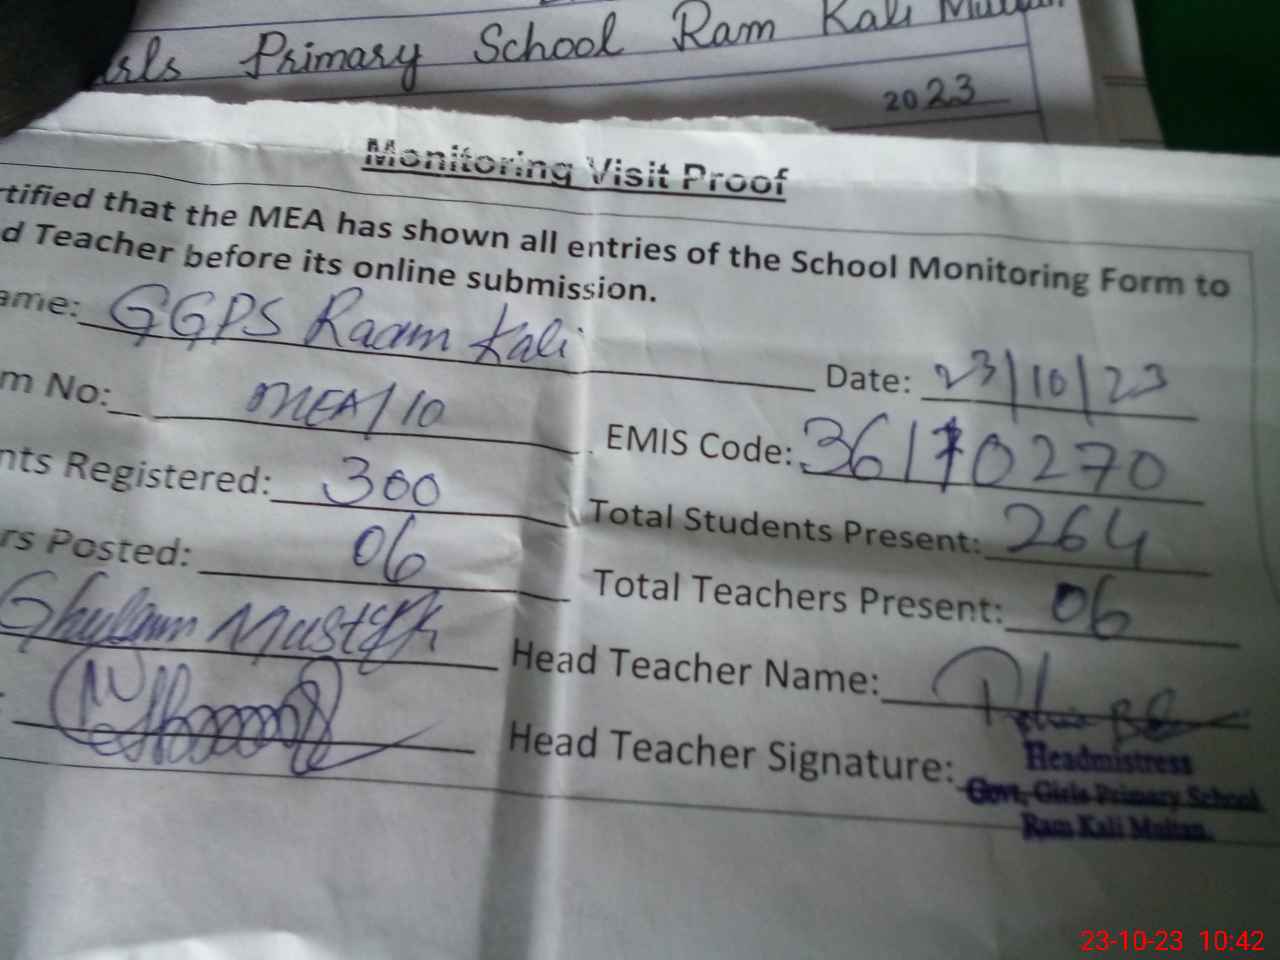 irls Primary School Ram Kali Multan
2023
Monitoring Visit Proof
rtified that the MEA has shown all entries of the School Monitoring Form to
d Teacher before its online submission.
ame: GGPS Raam Kali
Date: 23/10/23
m No: MEA/10
EMIS Code: 36170270
nts Registered: 300
Total Students Present: 264
rs Posted: 06
Total Teachers Present: 06
Ghulam Mustafa
Head Teacher Name:
Head Teacher Signature:
Headmistress
Govt, Girls Primary School
Ram Kali Multan.
23-10-23 10:42